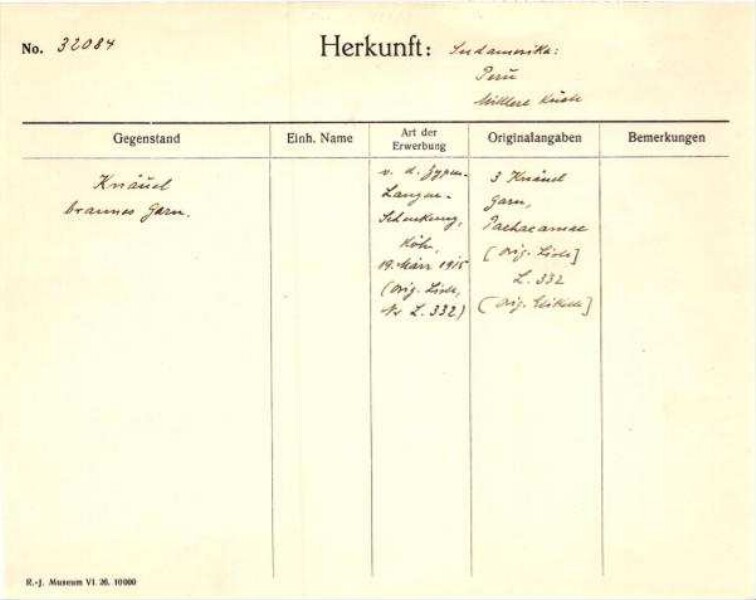 No. 32084
Herkunft: Südamerika:
Perú
Mittlere Küste
Gegenstand
Einh. Name
Art der Erwerbung
Originalangaben
Bemerkungen
Knäuel
braunes Garn.
v. d. Zypen-
Langen-
Schenkung,
Köln,
19. März 1915
(Orig. Liste,
Nr L. 332)
3 Knäuel
Garn,
Pachacamac
[Orig. Liste]
L. 332
[Orig. Etikette]
R.-J. Museum VI. 26. 10000